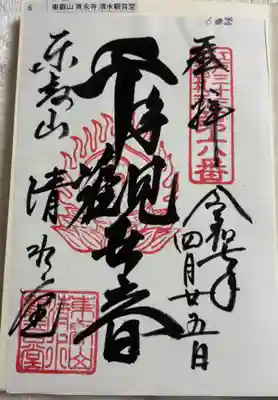 6 東叡山 寛永寺 清水観音堂
奉拝
令和七年
四月廿五日
千手観世音
東叡山
清水堂